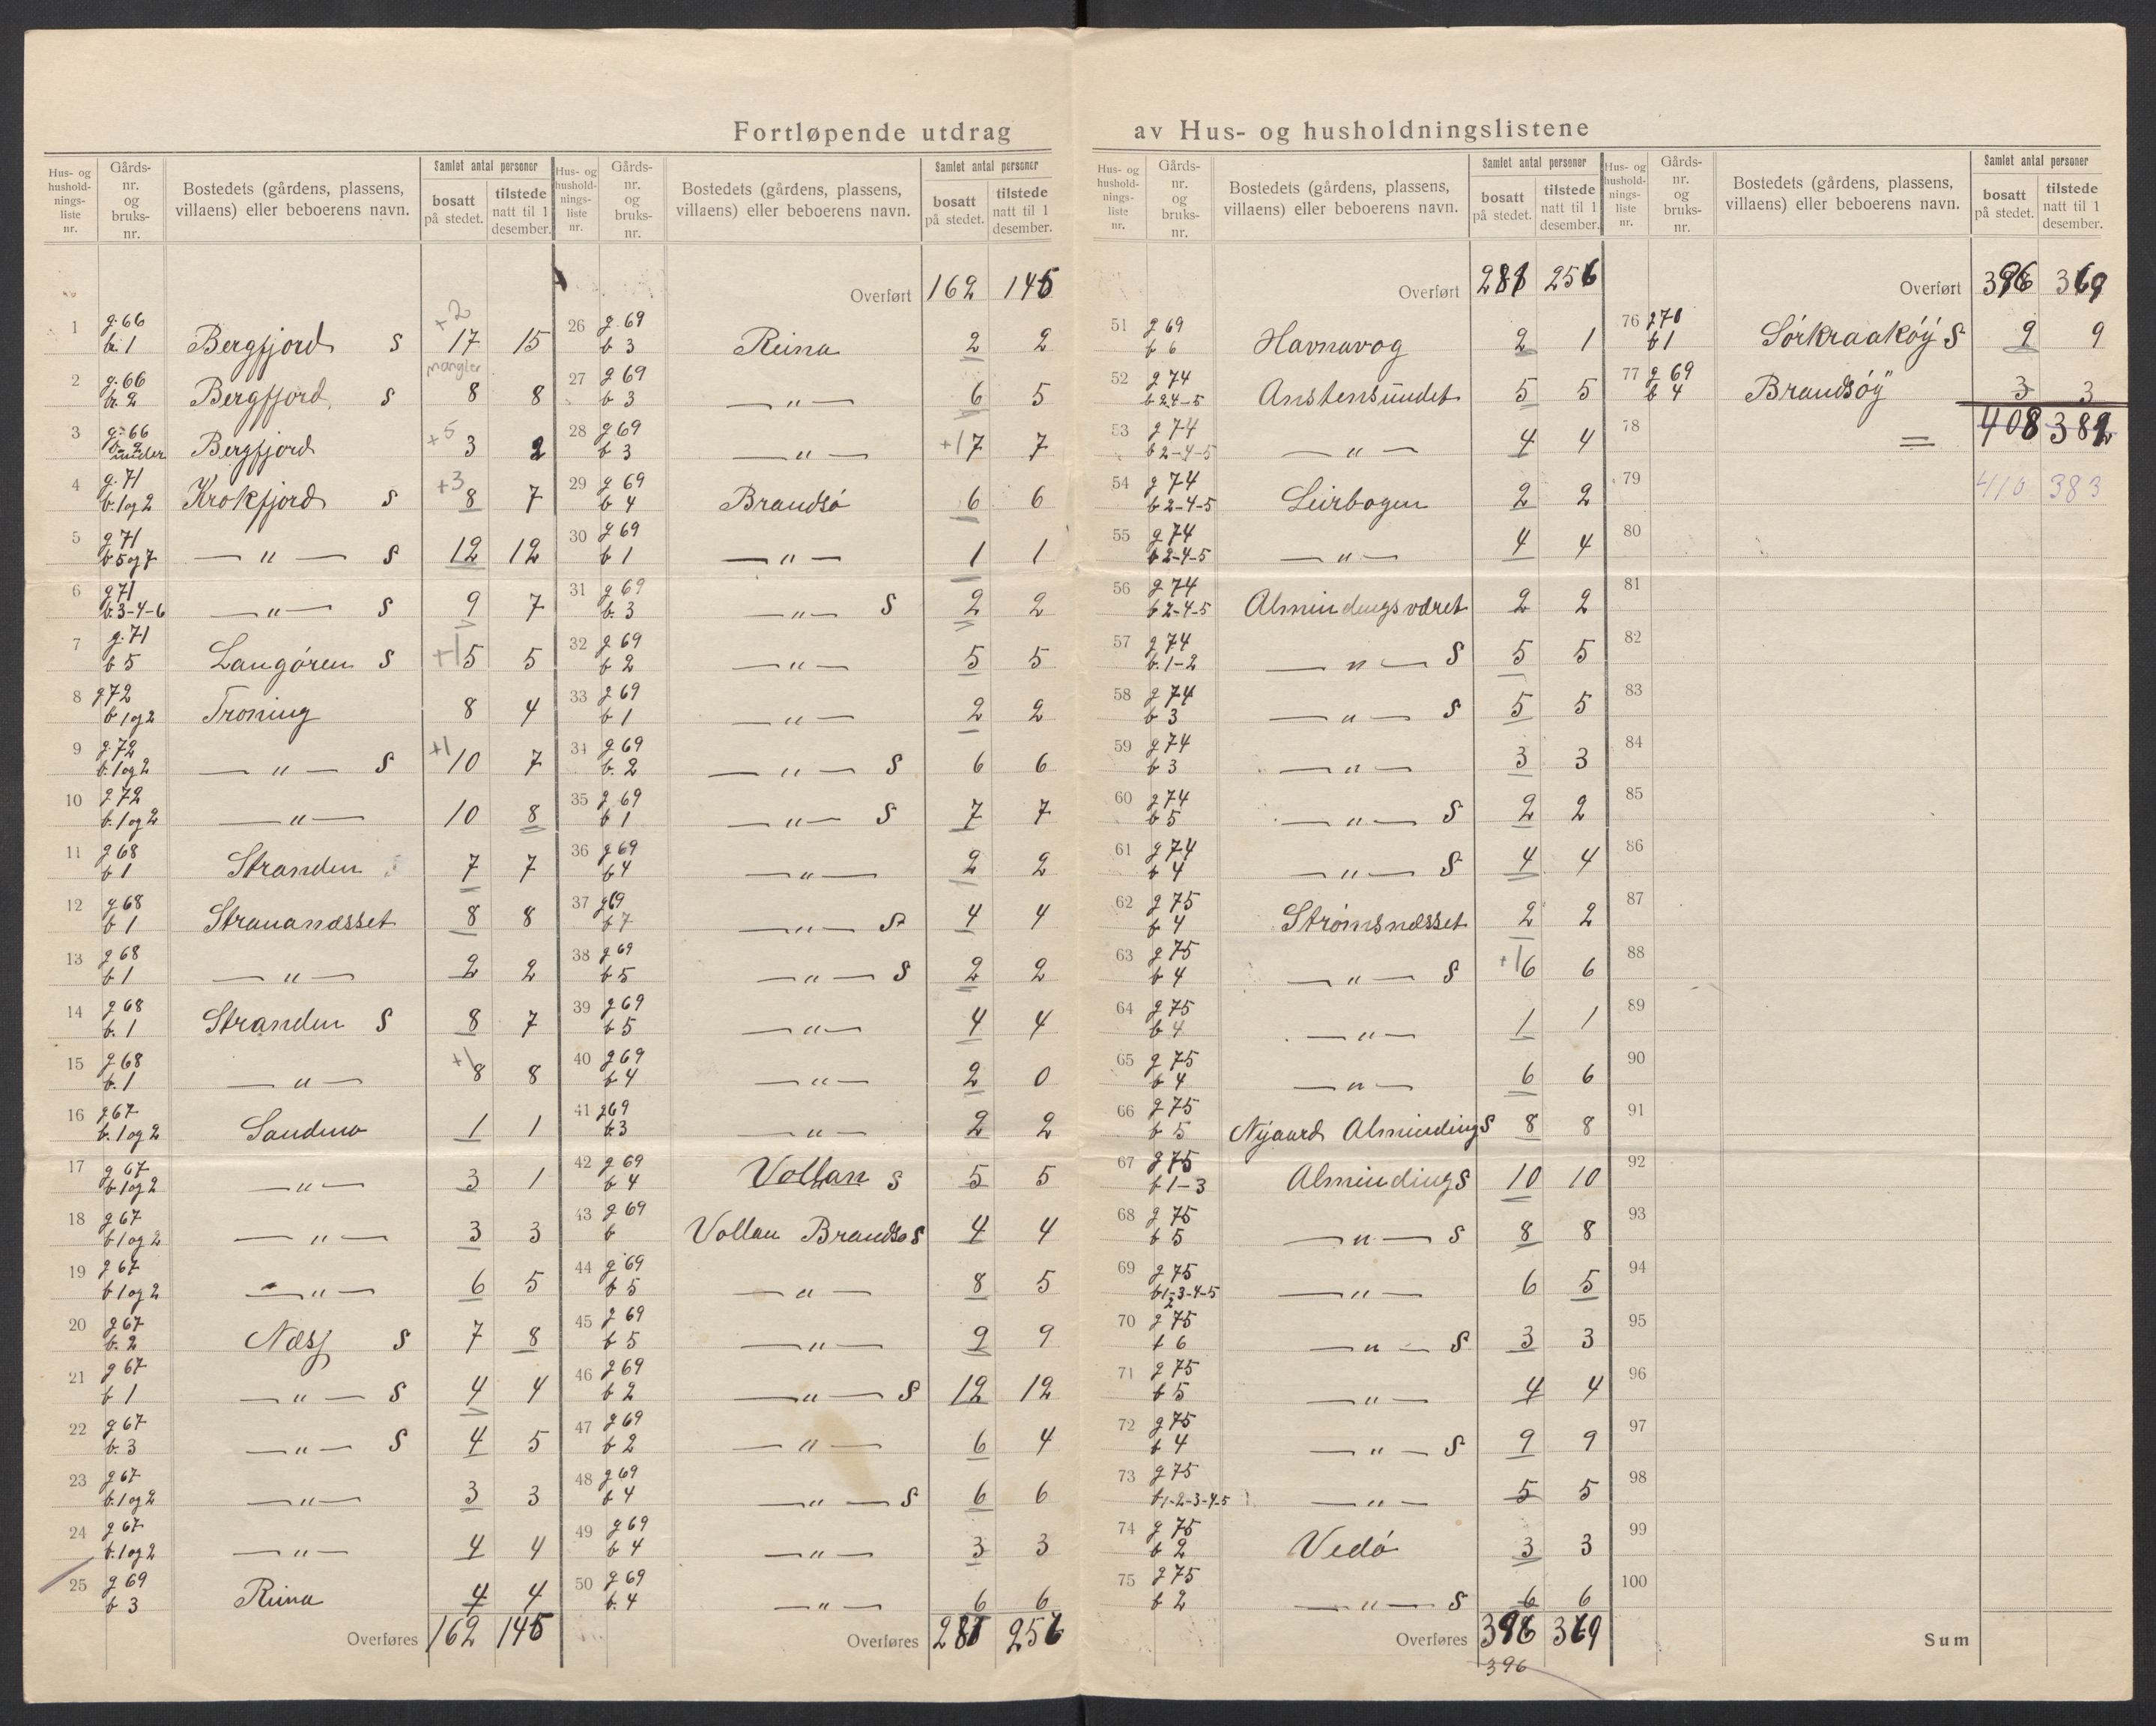 Fortløpende utdrag av Hus- og husholdningslistene
Hus- og hushold-nings-liste nr. Gårds-nr. og bruks-nr. Bostedets (gårdens, plassens, villaens) eller beboerens navn. Samlet antal personer bosatt på stedet. tilstede natt til 1 desember.
+2
1 g. 66 b. 1 Bergfjord S 17 15
mangler
2 g. 66 b. 2 Bergfjord S 8 8
3 g. 66 b. 2 under Bergfjord +5 3 2
4 g. 71 b. 1og2 Krokfjord S +3 8 7
5 g 71 b 5og7 — " — S 12 12
6 g 71 b. 3-4-6 — " — S 9 7
7 g. 71 b 5 Langören S +1 5 5
8 g 72 b 1og2 Troning 8 4
9 g. 72 b. 1og2 — " — S +1 10 7
10 g 72 b. 1og2 — " — 10 8
11 g 68 b 1 Stranden 7 7
12 g. 68 b 1 Strauanæsset 8 8
13 g 68 b 1 — " — 2 2
14 g 68 b. 1 Stranden S 8 7
15 g 68 b. 1 — " — +1 8 8
16 g 67 b. 1og2 Sandmo 1 1
17 g 67 b 1og2 — " — 3 1
18 g 67 b 1og2 — " — 3 3
19 g 67 b 1og2 — " — 6 5
20 g 67 b. 2 Næss S 7 8
21 g 67 b 1 — " — S 4 4
22 g 67 b. 3 — " — S 4 5
23 g 67 b. 1og2 — " — 3 3
24 g 67 b. 1og2 — " — 4 4
25 g 69 b 3 Reina 4 4
Overføres 162 145
Hus- og hushold-nings-liste nr. Gårds-nr. og bruks-nr. Bostedets (gårdens, plassens, villaens) eller beboerens navn. Samlet antal personer bosatt på stedet. tilstede natt til 1 desember.
Overført 162 145
26 g. 69 b 3 Reina 2 2
27 g 69 b 3 — " — 6 5
28 g 69 b 3 — " — +1 7 7
29 g 69 b 4 Brandsö 6 6
30 g 69 b 1 — " — 1 1
31 g 69 b. 3 — " — S 2 2
32 g 69 b 2 — " — 5 5
33 g 69 b 1 — " — 2 2
34 g 69 b. 2 — " — S 6 6
35 g 69 b 1 — " — S 7 7
36 g 69 b 4 — " — 2 2
37 g 69 b 7 — " — S 4 4
38 g 69 b 5 — " — S 2 2
39 g 69 b 5 — " — 4 4
40 g 69 b 4 — " — 2 0
41 g 69 b. 3 — " — 2 2
42 g 69 b 4 Vollan S 5 5
43 g 69 b Vollan Brandsö S 4 4
44 g 69 b 5 — " — 8 5
45 g 69 b 5 — " — 9 9
46 g 69 b 2 — " — S 12 12
47 g 69 b 2 — " — 6 4
48 g 69 b 4 — " — S 6 6
49 g 69 b 4 — " — 3 3
50 g 69 b. 4 — " — 6 6
Overføres 281 256
Hus- og hushold-nings-liste nr. Gårds-nr. og bruks-nr. Bostedets (gårdens, plassens, villaens) eller beboerens navn. Samlet antal personer bosatt på stedet. tilstede natt til 1 desember.
Overført 281 256
51 g 69 b 6 Havnavog 2 1
52 g 74 b 2 4-5 Anstensundet 5 5
53 g 74 b 2-4-5 — " — 4 4
54 g 74 b 2-4-5 Leirbogen 2 2
55 g 74 b 2-4-5 — " — 4 4
56 g 74 b 2-4-5 Almindingsværet 2 2
57 g 74 b. 1-2 — " — S 5 5
58 g 74 b 3 — " — S 5 5
59 g 74 b 3 — " — 3 3
60 g 74 b 5 — " — S 2 2
61 g 74 b 4 — " — S 4 4
62 g 75 b 4 Strömsnæsset 2 2
63 g 75 b 4 — " — S +1 6 6
64 g 75 b 4 — " — 1 1
65 g 75 b 4 — " — 6 6
66 g 75 b 5 Nygaard Alminding S 8 8
67 g 75 b 1-3 Alminding S 10 10
68 g 75 b 5 — " — S 8 8
69 g 75 b 1-3-4-5 2 — " — 6 5
70 g 75 b 6 — " — S 3 3
71 g 75 b 5 — " — 4 4
72 g 75 b 4 — " — S 9 9
73 g 75 b 1-2-3-4-5 — " — 5 5
74 g 75 b 2 Vedö 3 3
75 g 75 b 2 — " — S 6 6
Overføres 396 369
396
Hus- og hushold-nings-liste nr. Gårds-nr. og bruks-nr. Bostedets (gårdens, plassens, villaens) eller beboerens navn. Samlet antal personer bosatt på stedet. tilstede natt til 1 desember.
Overført 396 369
76 g 70 b 1 Sörkraaköy S 9 9
77 g 69 b 4 Brandsöy 3 3
78 = 408 382
79 410 383
80
81
82
83
84
85
86
87
88
89
90
91
92
93
94
95
96
97
98
99
100
Sum